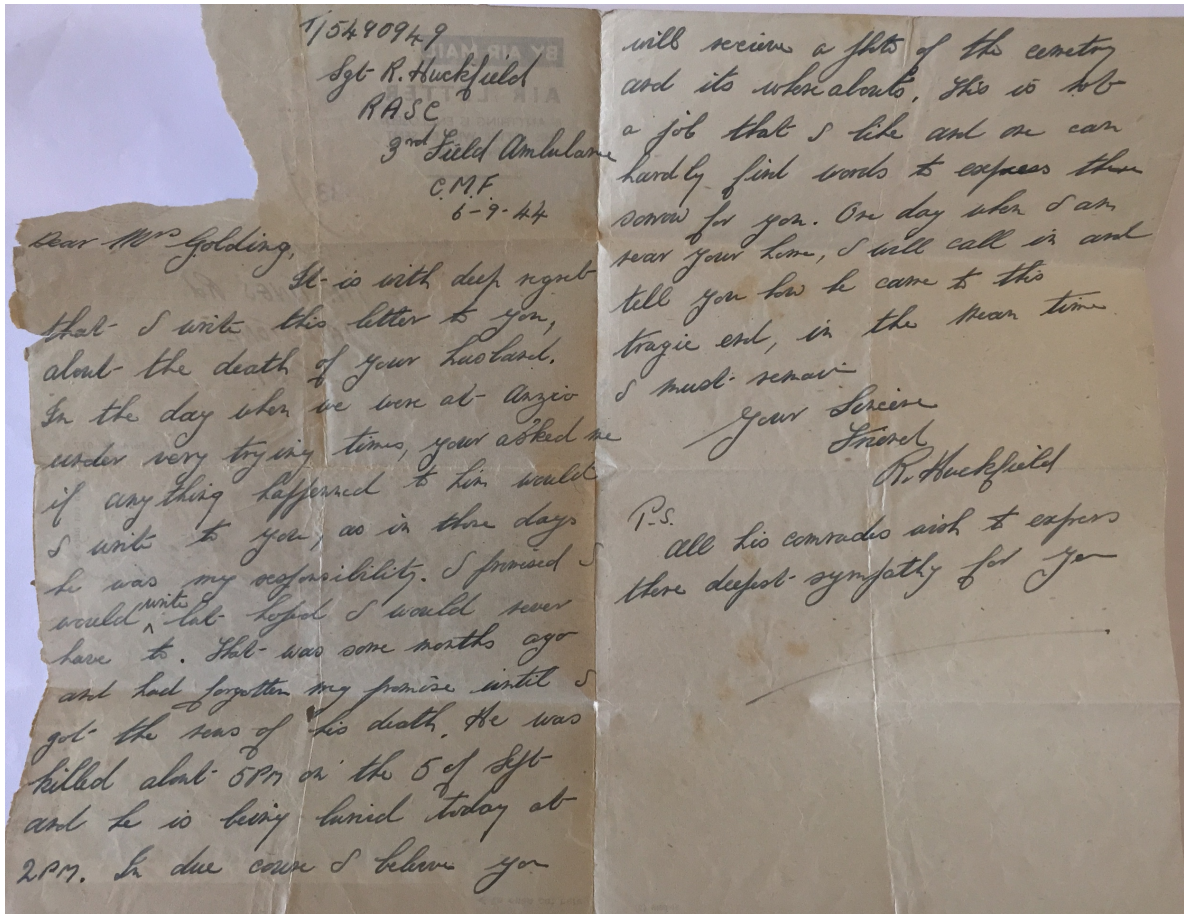 T/5490949
Sgt R. Huckfield
RASC
3rd Field Ambulance
C.M.F.
6-9-44
Dear Mrs Golding,
It is with deep regret
that I write this letter to you,
about the death of your husband.
In the day when we were at Anzio
under very trying times, your asked me
if anything happened to him would
I write to you, as in those days
he was my responsibility. I promised I
would write but hoped I would never
have to. That was some months ago
and had forgotten my promise until I
got the news of his death. He was
killed about 5PM on the 5 of Sept
and he is being buried today at
2PM. In due course I believe you
will recieve a photo of the cemetry
and its whereabouts. This is not
a job that I like and one can
hardly find words to express there
sorrow for you. One day when I am
near your home, I will call in and
tell you how he came to this
tragic end, in the mean time
I must remain
Your Sincere
Friend
R. Huckfield
P.S.
All his comrades wish to express
there deepest sympathy for you
BY AIR MAIL
AIR LETTER